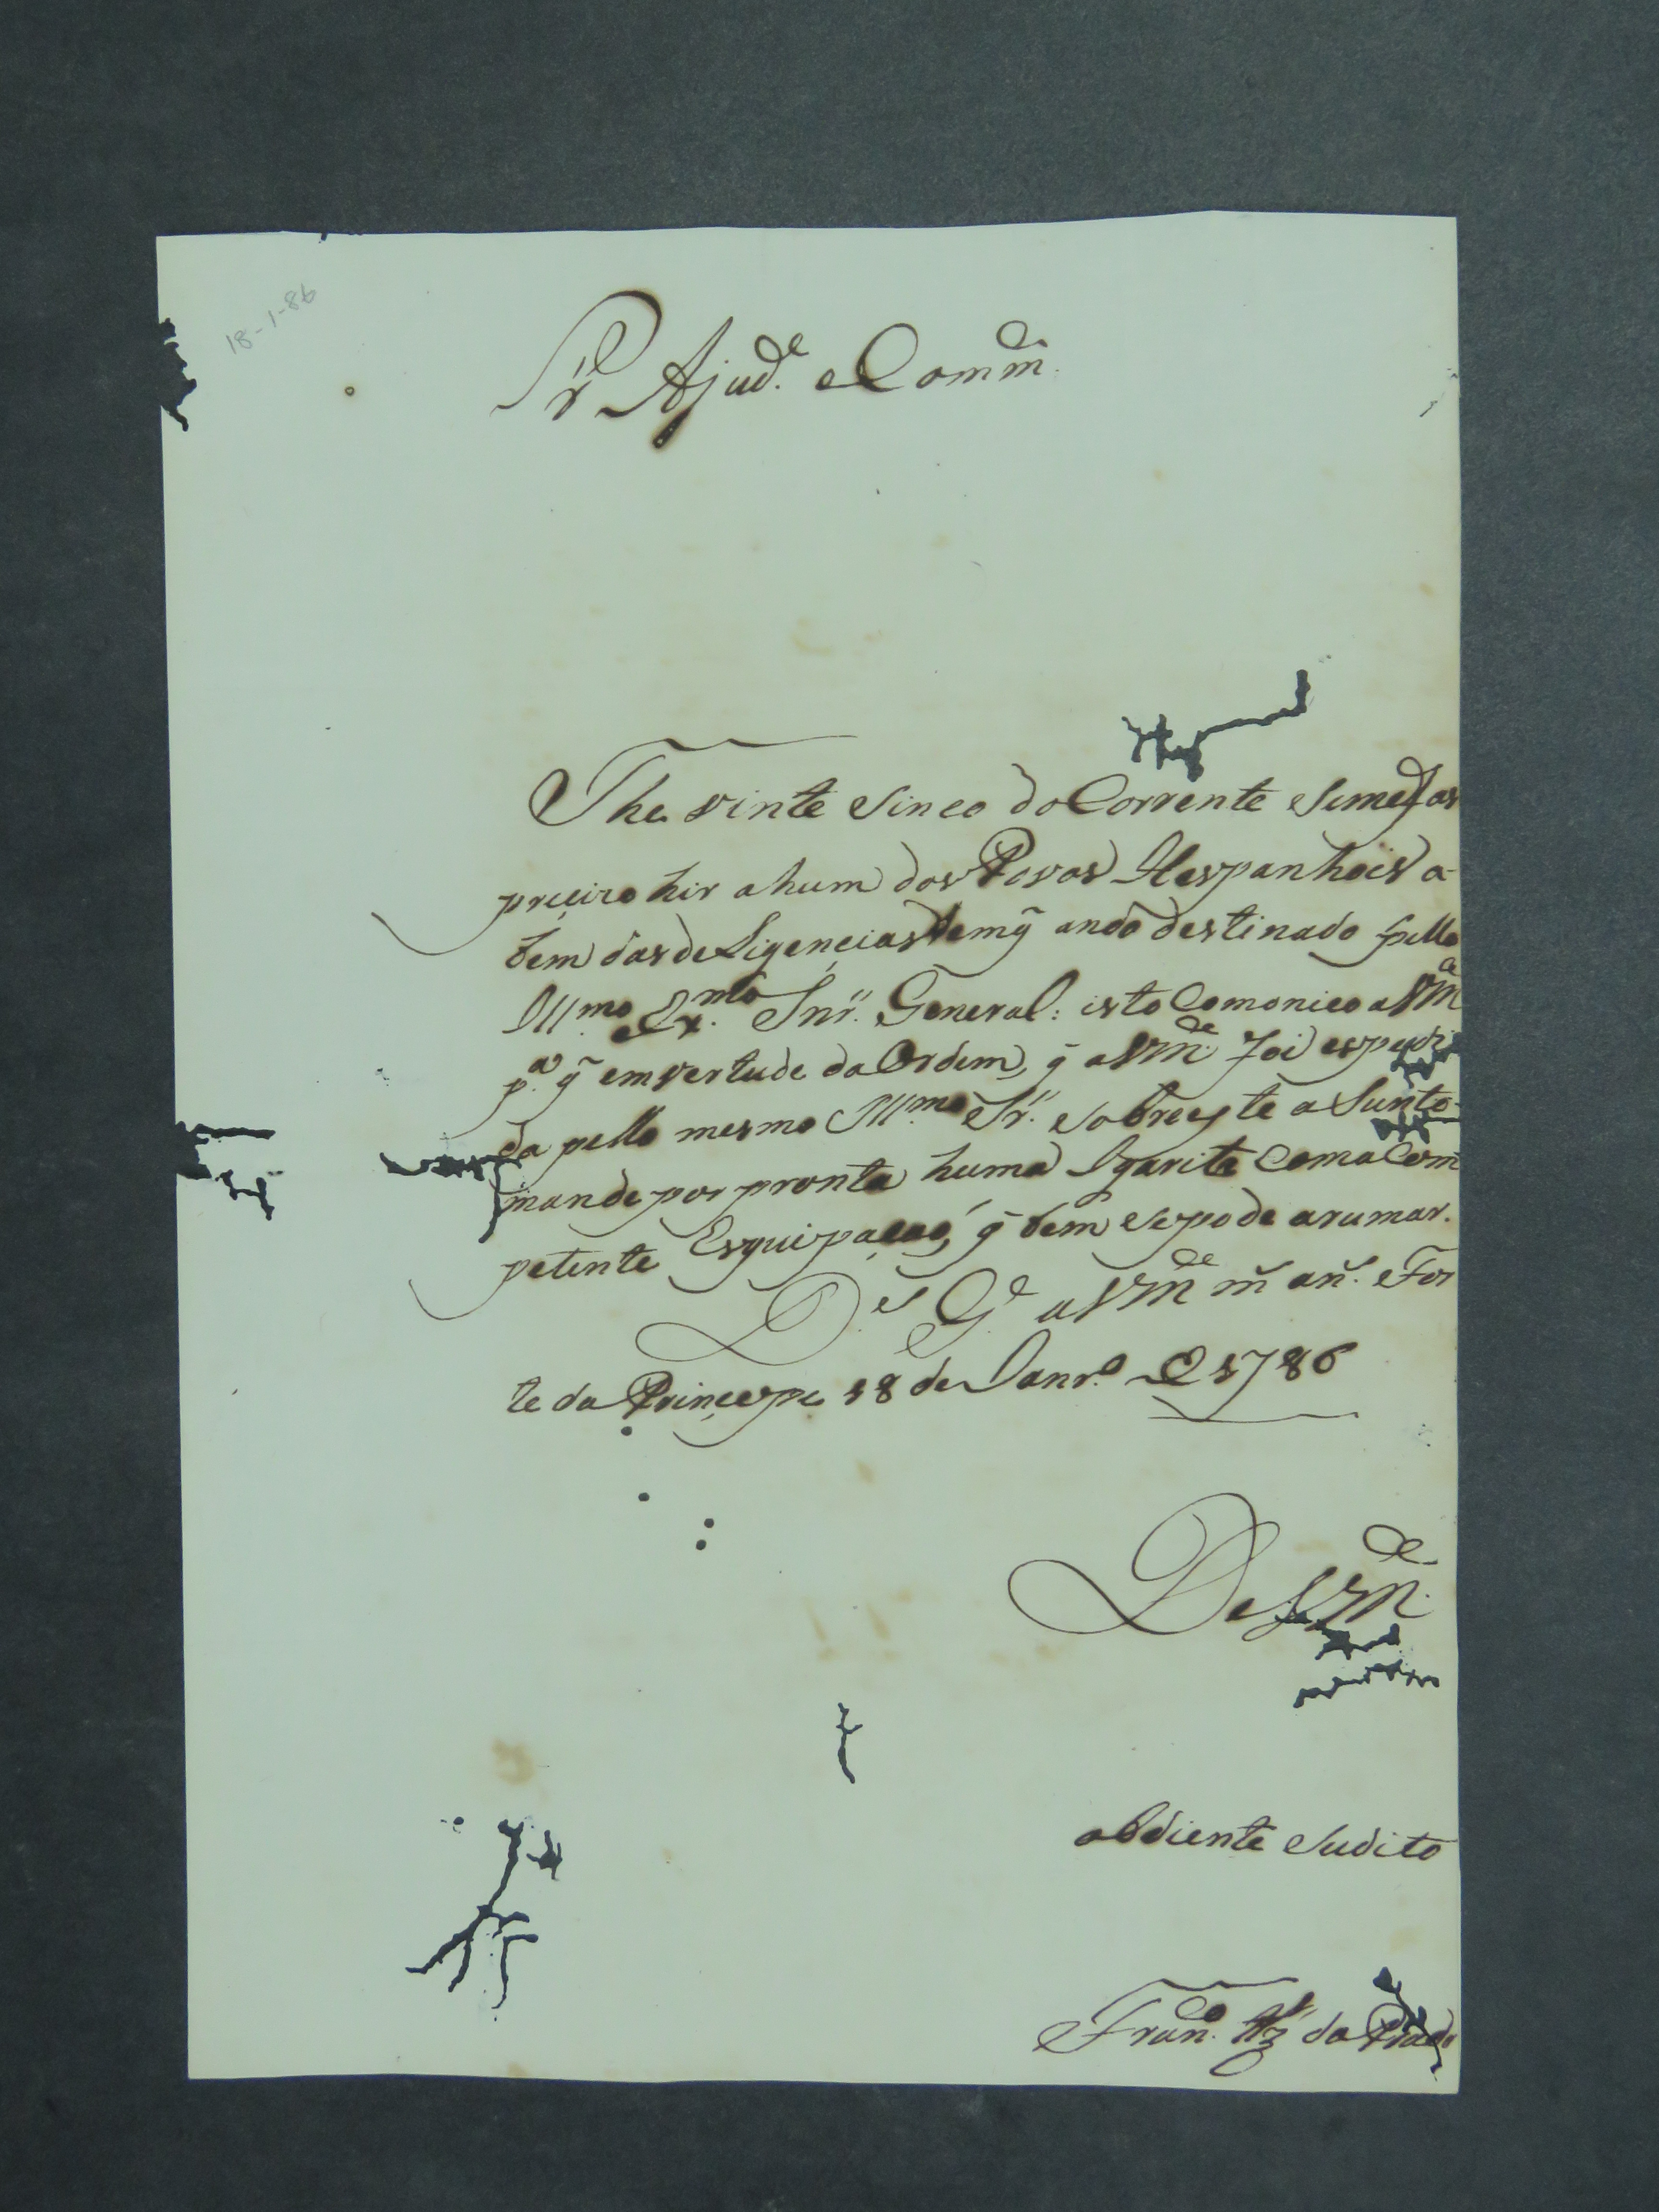 18-1-86
Sr. Ajud.e e Comm.de
The vinte sinco do Corrente seme f as
precizo hir a hum dos Povos Hespanhois a
bem das de Ligencias demq̃ ando destinado pello
Ill.mo e Ex.mo Snr. General: isto Comonico a VM.ce
p.a q̃ em vertude da Ordem, q̃ a VM.ce foi espedi
da pello mesmo Ill.mo Sr. sobre este a Sunto
mande por pronta huma Igarite Com a Com
petente Esquipaçaõ, q̃ bem se pode arumar.
D.s G.e a VM.ce m.s an.s For
te da Princepe 18 de Janr.o D 1786
De VM.ce
obdiente sudito
Fran.co Roiz do Prado